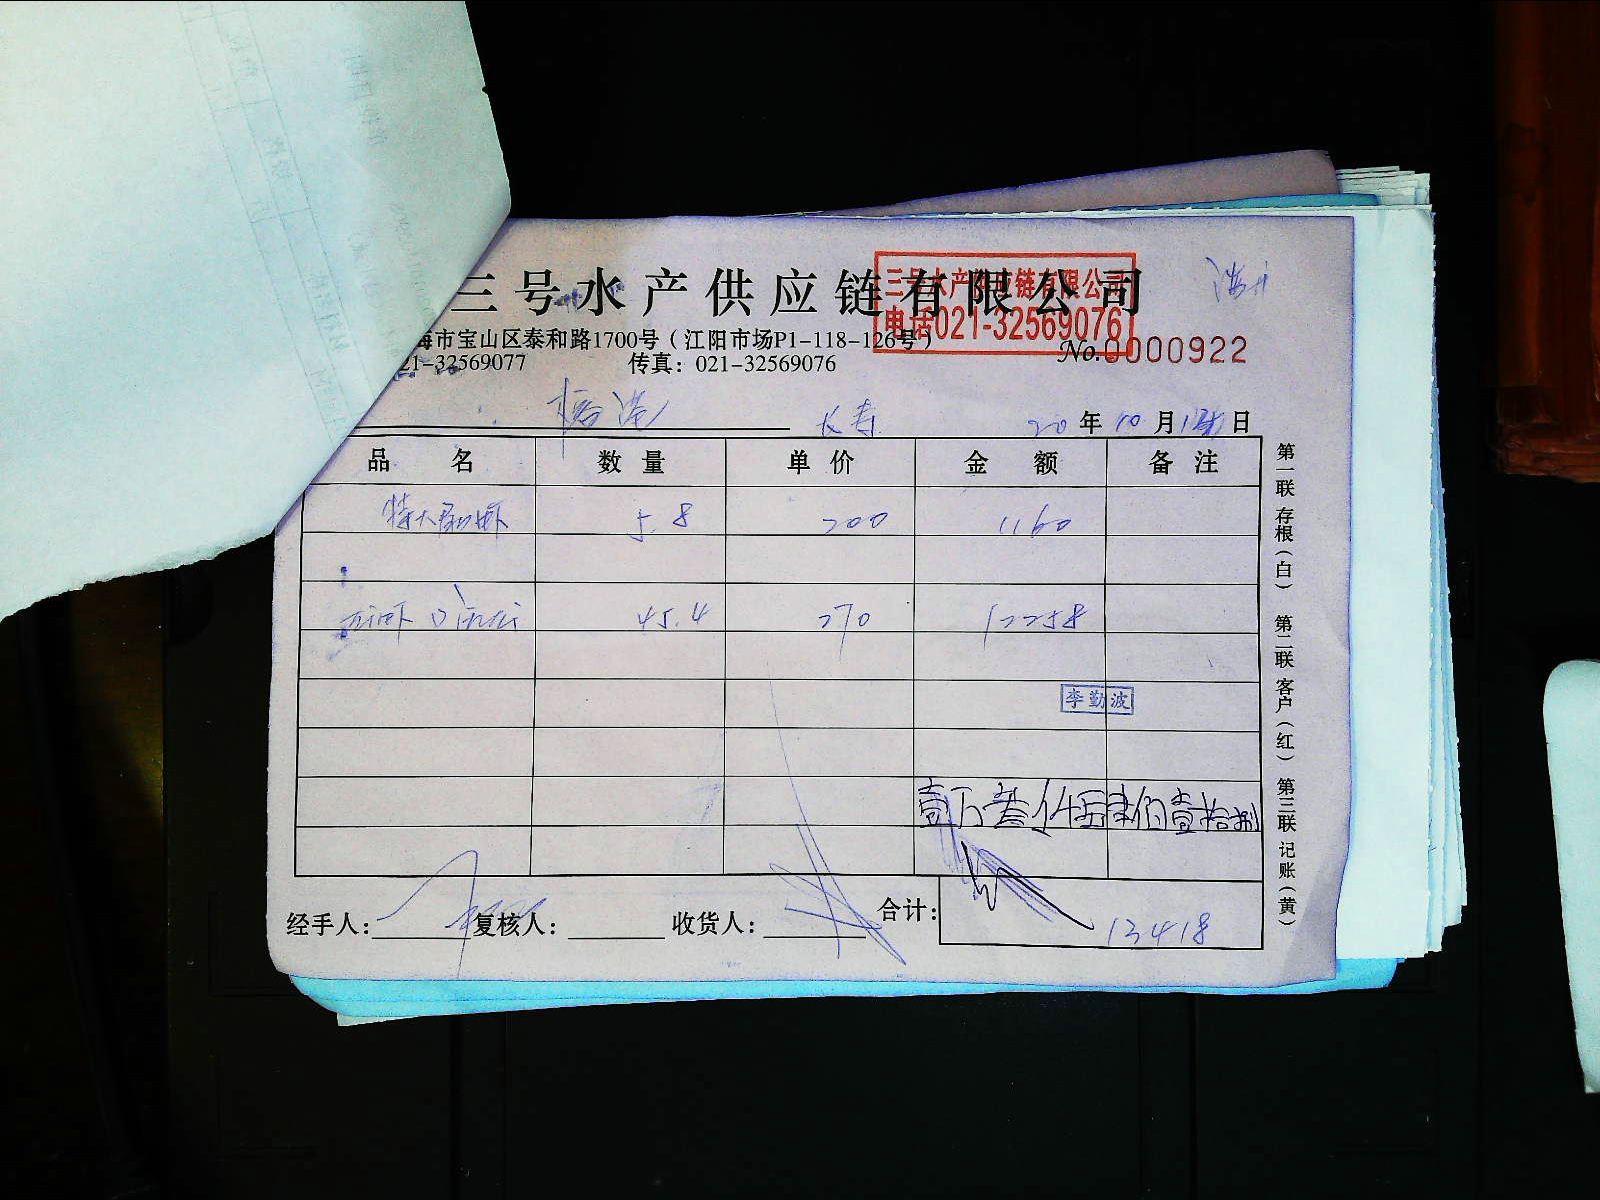 三号水产供应链有限公司
三号水产供应链有限公司
电话021-32569076
海市宝山区泰和路1700号（江阳市场P1-118-126号）
21-32569077 传真：021-32569076
No.0000922
长寿 20年10月 日
品名 数量 单价 金额 备注
特大 虾 5.8 200 1160
虾 45.4 270 12258
李勤波
壹万叁仟 肆佰壹拾捌
经手人： 复核人： 收货人： 合计：
13418
第一联 存根（白） 第二联 客户（红） 第三联 记账（黄）